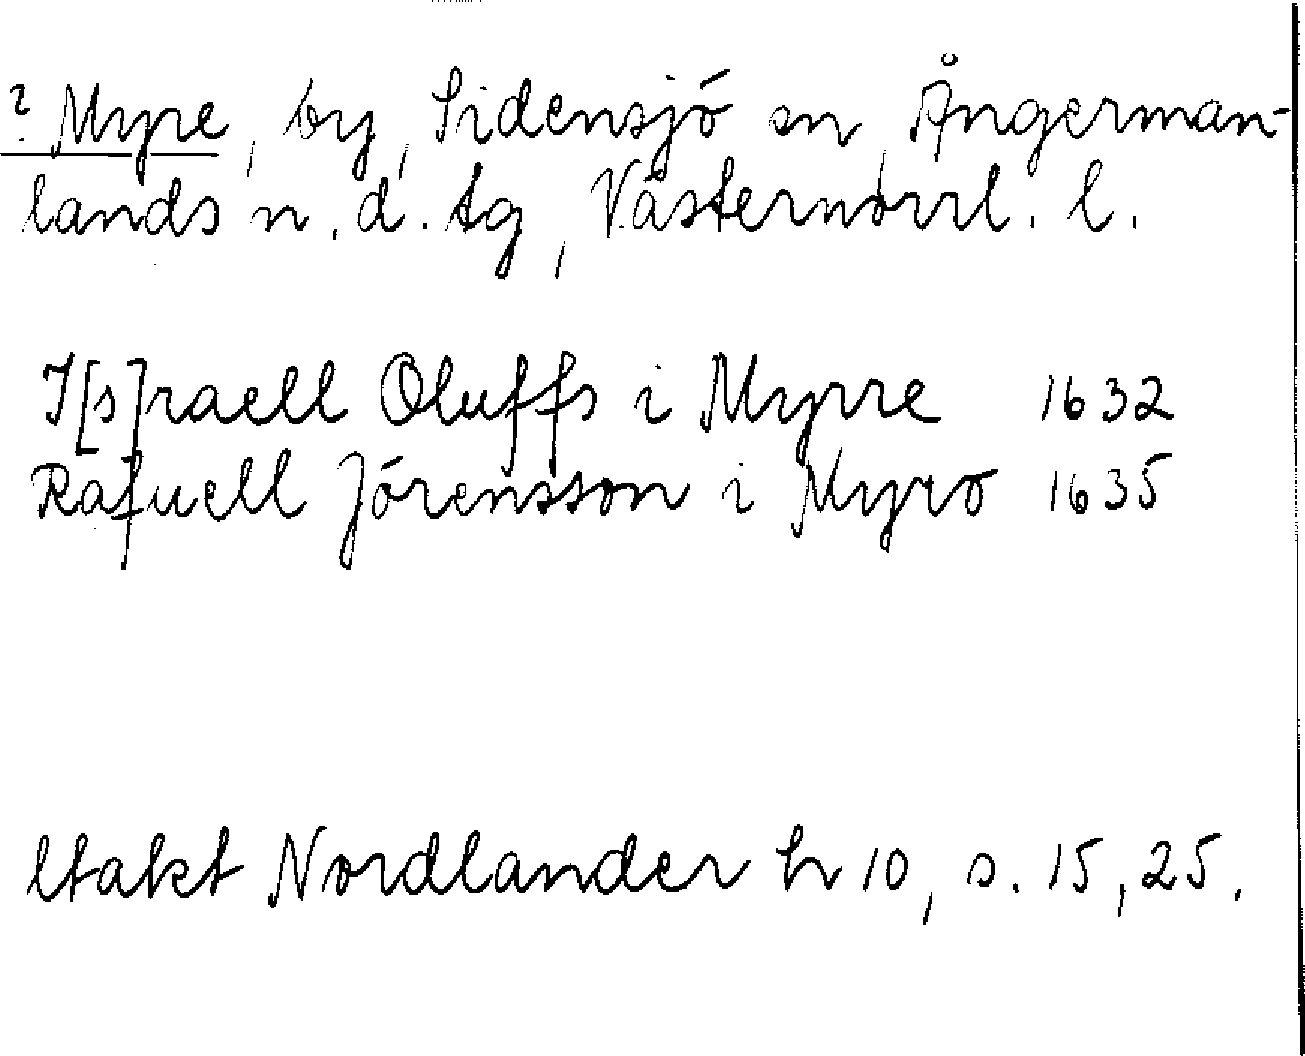 ? Myre, by, Sidensjö sn, Ångerman-
lands n. d. tg, Västernorrl. l.
I[s]raell Oluffs i Myrre 1632
Rafuell Jörensson i Myro 1635
Utakt Nordlander h 10, s. 15, 25.